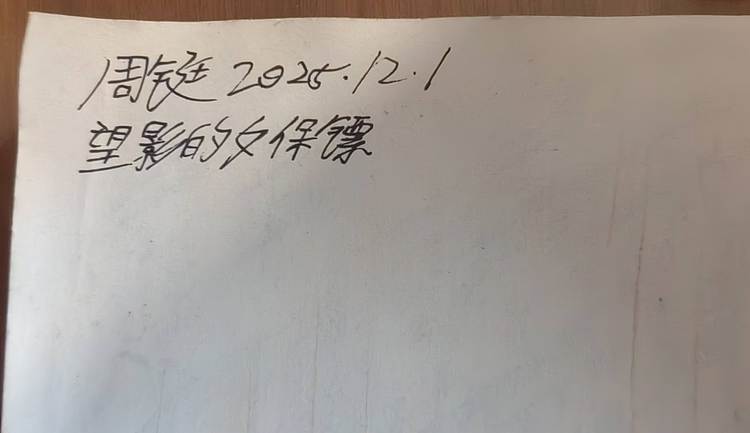 周铤 2025.12.1
望影的女保镖